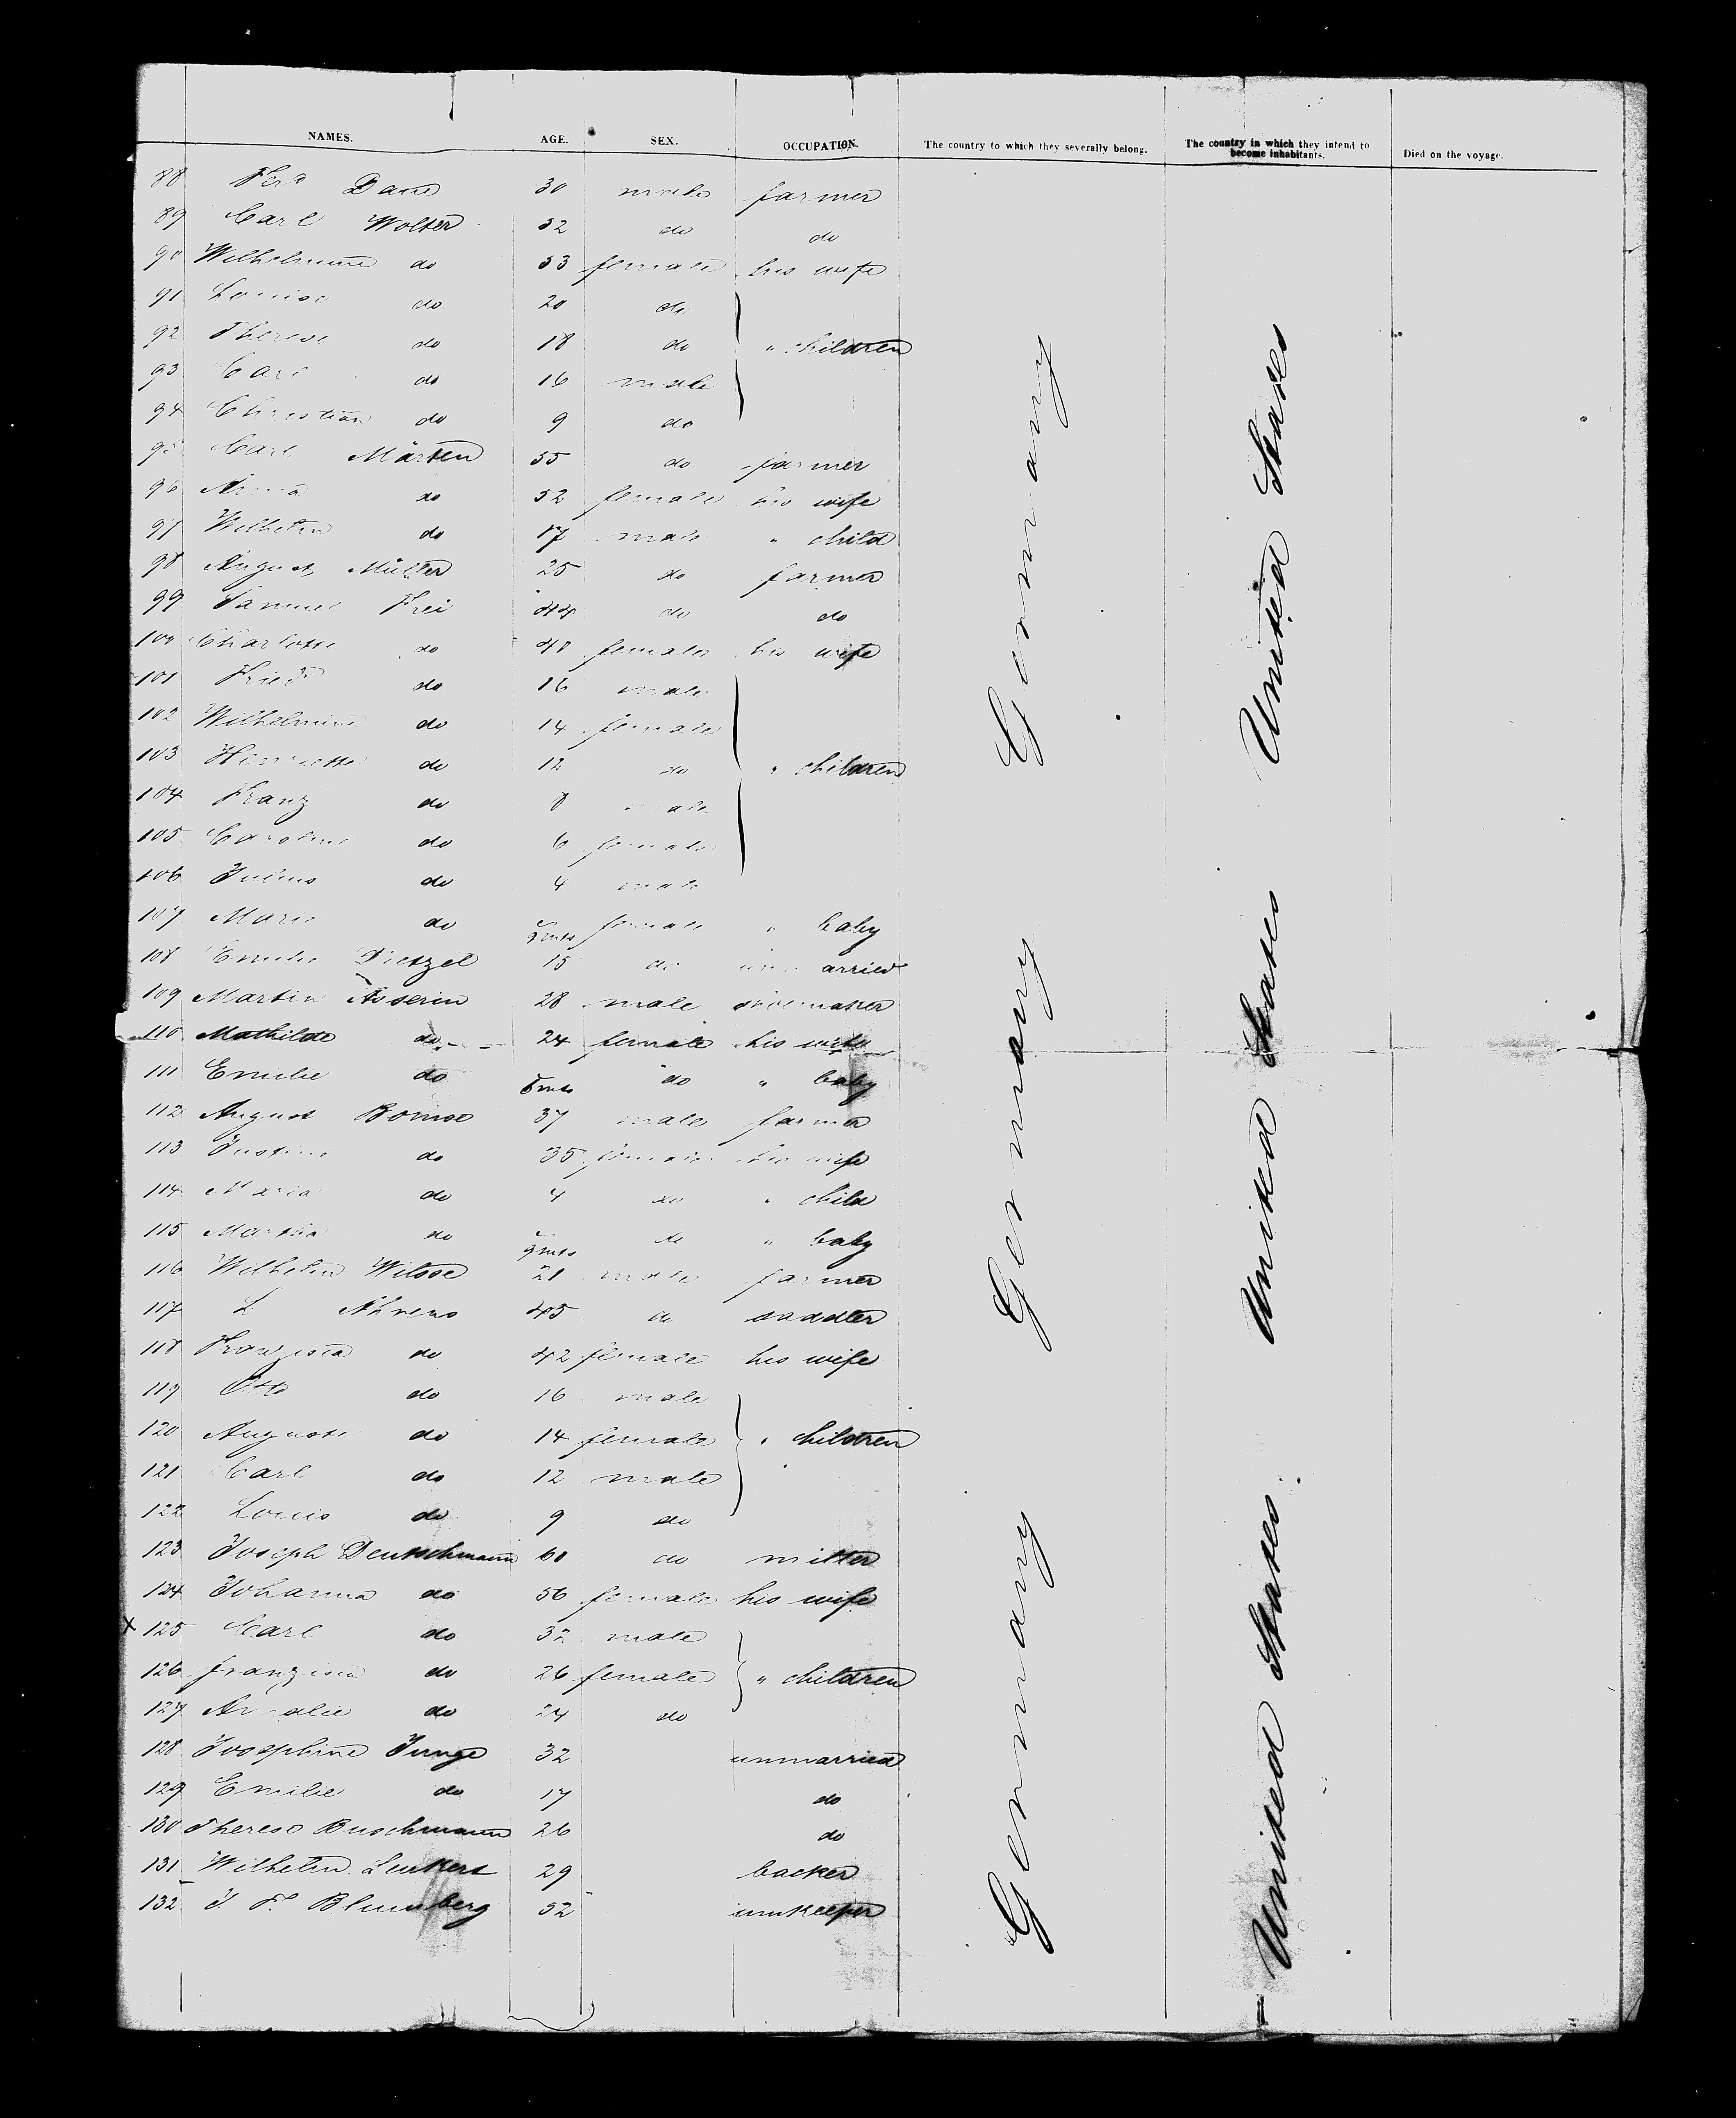 NAMES. AGE. SEX. OCCUPATION. The country to which they severally belong. The country in which they intend to become inhabitants. Died on the voyage.
88 30 male farmer
89 Carl Wolter 52 do do
90 Wilhelmine do 53 female his wife
91 Louise do 20 do
92 Therese do 18 do " children
93 Carl do 16 male
94 Christian do 9 do
95 Carl Märten 55 do farmer
96 Anna do 52 female his wife
97 Wilhelm do 17 male " child
98 August Müller 25 do farmer
99 Samuel Frei 44 do do
100 Charlotte do 40 female his wife
101 Friedr do 16 male
102 Wilhelmine do 14 female
103 Henriette do 12 do " children
104 Franz do 8 male
105 Caroline do 6 female
106 Julius do 4 male
107 Marie do 9 mts female " baby
108 Emilie Dietzel 15 do unmarried
109 Martin Asserin 28 male shoemaker
110 Mathilde do 24 female his wife
111 Emilie do mts do " baby
112 August 37 male farmer
113 Justine do 35 female his wife
114 Maria do 4 do " child
115 Martha do 9 mts do " baby
116 Wilhelm Witsse 21 male farmer
117 L Ahrens 45 do saddler
118 Franzisca do 42 female his wife
119 Otto do 16 male
120 Auguste do 14 female " children
121 Carl do 12 male
122 Louis do 9 do
123 Joseph Deutschmann 60 do miller
124 Johanna do 56 female his wife
x 125 Carl do 32 male
126 Franzisca do 26 female " children
127 Amalie do 24 do
128 Josephine Junge 32 unmarried
129 Emilie do 17 do
130 Therese Buschmann 26 do
131 Wilhelm Leukert 29 backer
132 J. F. Blumberg 52 innkeeper
Germany United States
Germany United States
Germany United States